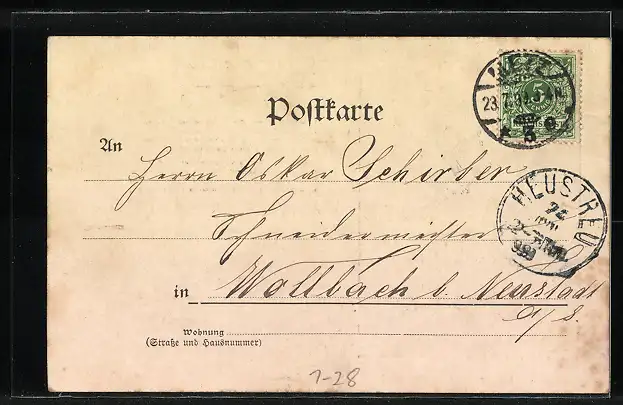 Postkarte
An
Herrn Oskar Schirber
Schneidermeister
in Wollbach b Neustadt
a/S.
Wohnung
(Straße und Hausnummer)
METZ
23.7.99
3
5
HEUSTREU
24
99
1-28